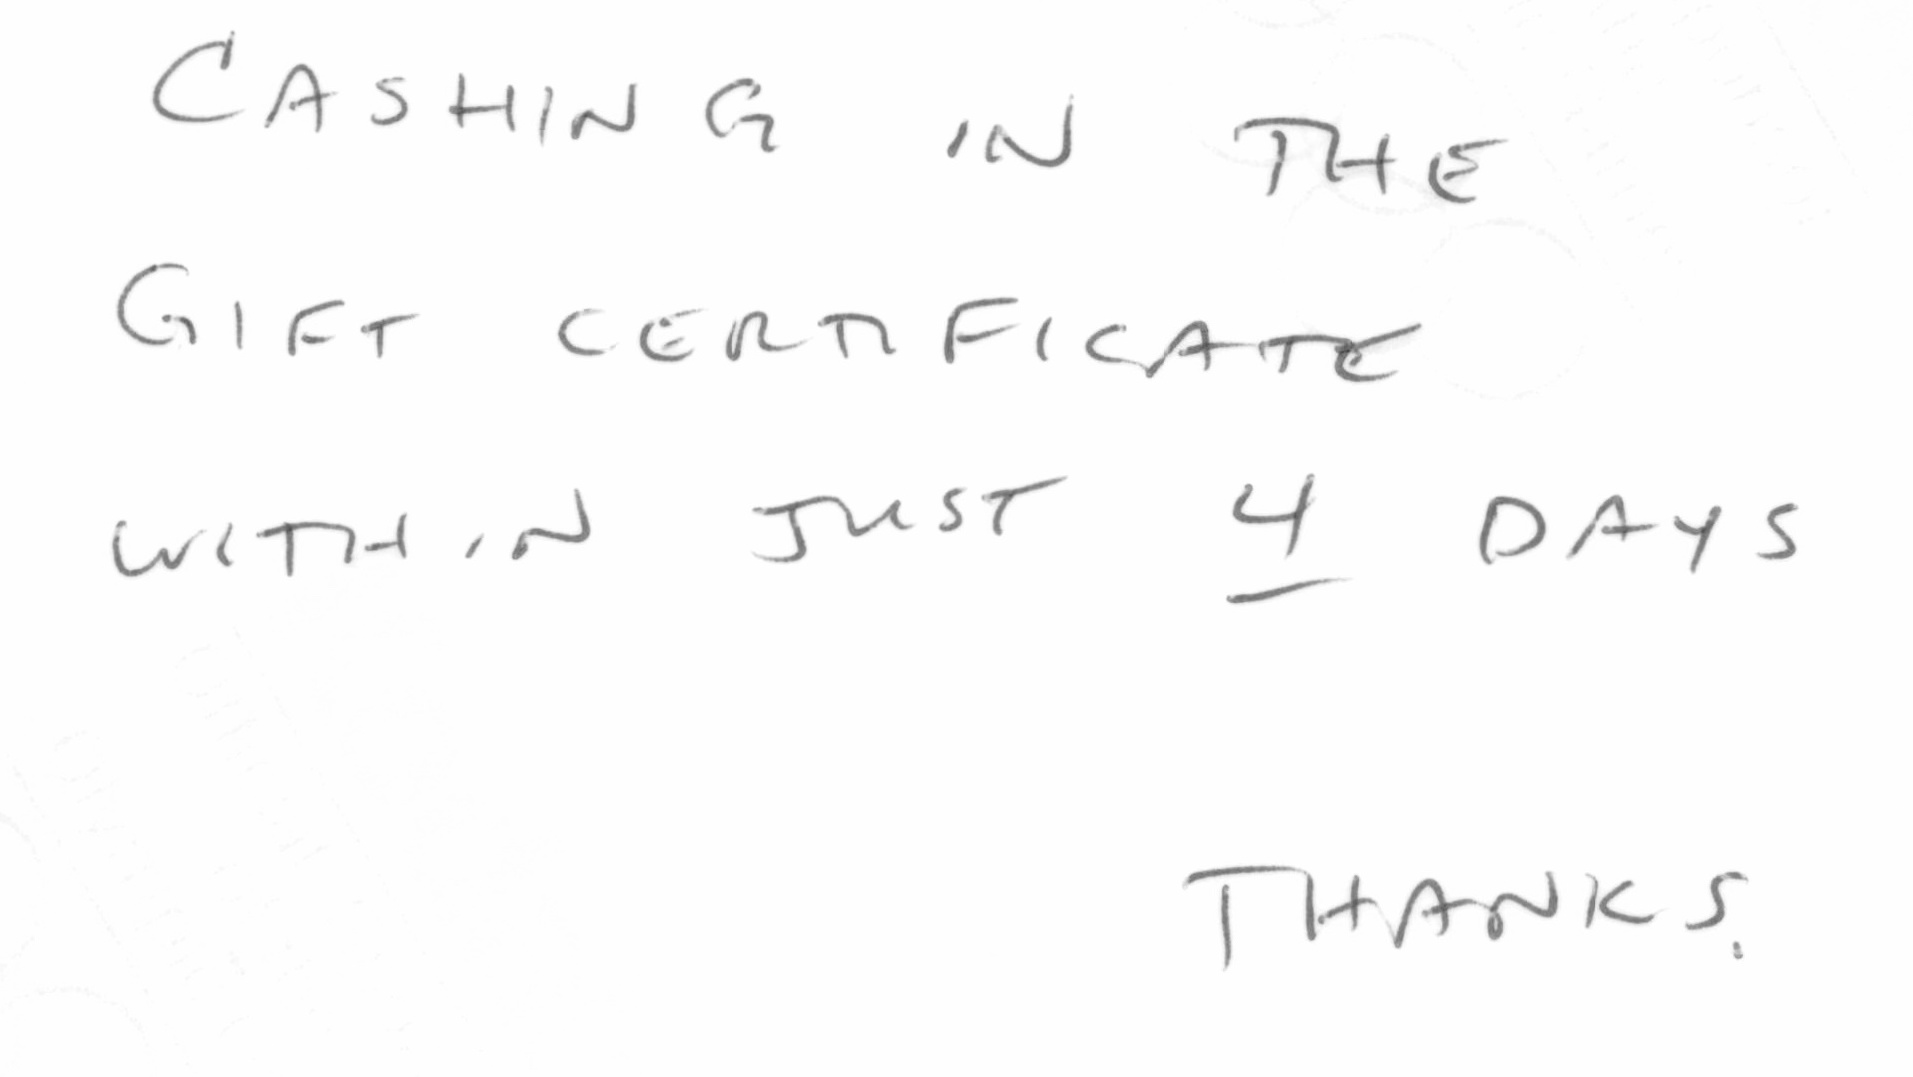 CASHING IN THE
GIFT CERTIFICATE
WITHIN JUST 4 DAYS
THANKS.